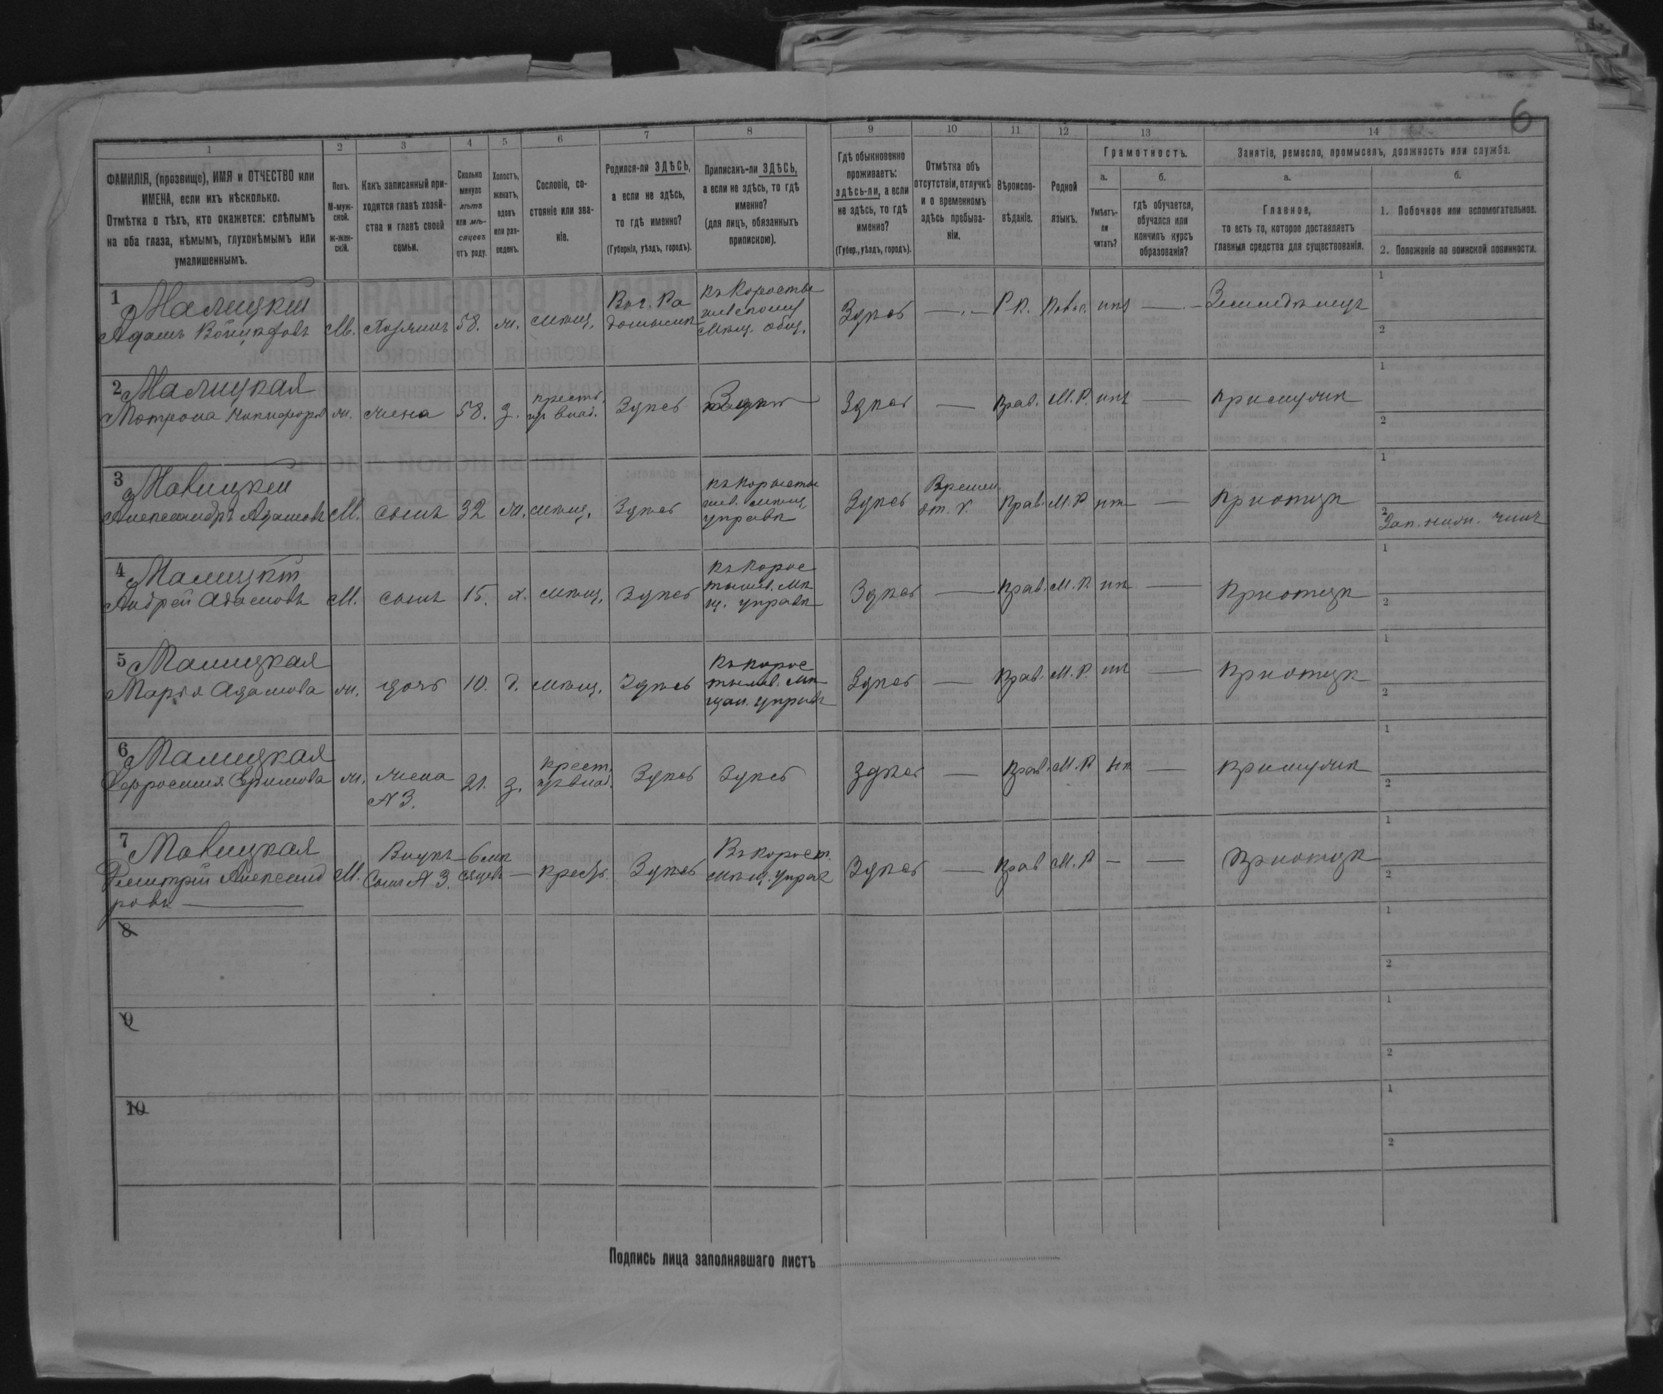 6
1 2 3 4 5 6 7 8 9 10 11 12 13 14
ФАМИЛІЯ, (прозвище), ИМЯ и ОТЧЕСТВО или
ИМЕНА, если ихъ нѣсколько.
Отмѣтка о тѣхъ, кто окажется: слѣпымъ
на оба глаза, нѣмымъ, глухонѣмымъ или
умалишеннымъ.
Полъ.
М-муж-
ской.
ж-жен-
скій.
Какъ записанный при-
ходится главѣ хозяй-
ства и главѣ своей
семьи.
Сколько
минуло
лѣтъ
или мѣ-
сяцевъ
отъ роду.
Холостъ,
женатъ,
вдовъ
или раз-
веденъ.
Сословіе, со-
стояніе или зва-
ніе.
Родился-ли ЗДѢСЬ,
а если не здѣсь,
то гдѣ именно?
(Губернія, уѣздъ, городъ).
Приписанъ-ли ЗДѢСЬ,
а если не здѣсь, то гдѣ
именно?
(для лицъ, обязанныхъ
припискою).
Гдѣ обыкновенно
проживаетъ:
здѣсь-ли, а если
не здѣсь, то гдѣ
именно?
(Губер., уѣздъ, городъ).
Отмѣтка объ
отсутствіи, отлучкѣ
и о временномъ
здѣсь пребыва-
ніи.
Вѣроиспо-
вѣданіе.
Родной
языкъ.
Грамотность.
а.
Умѣетъ-
ли
читать?
б.
гдѣ обучается,
обучался или
кончилъ курсъ
образованія?
Занятіе, ремесло, промыселъ, должность или служба.
а.
Главное,
то есть то, которое доставляетъ
главныя средства для существованія.
б.
1. Побочное или вспомогательное.
2. Положеніе по воинской повинности.
1 Малицкій
Адамъ
М. Хозяинъ 58. ж. мѣщ.
Къ Коросты
шевскому
мѣщ. общ.
Здѣсь — Р.К. нѣт —
1
2
2 Малицкая
Мотрона Никифоров
ж. жена 58. з.
крестъ.
Здѣсь Здѣсь — Прав. М.Р. нѣт — При мужѣ
1
2
3 Малицкій
Александръ Адамовъ
М. сынъ 32 ж. мѣщ. Здѣсь
Къ Коросты
шев. мѣщ
управѣ
Здѣсь
Времен.
от.
Прав. М.Р. нѣт — При отцѣ
1
2 Зап. нижн. чинъ
4 Малицкій
Андрей Адамовъ
М. сынъ 15. х. мѣщ. Здѣсь
Къ Корос
тышев. мѣ
щ. управѣ
Здѣсь — Прав. М.Р. нѣ — При отцѣ
1
2
5 Малицкая
Марья Адамова
ж. дочь 10. д. мѣщ. Здѣсь
Къ Корос
тышев. мѣ
щан. управѣ
Здѣсь — Прав. М.Р. нѣт — При отцѣ
1
2
6 Малицкая
Ефросинія Ефимова
ж. жена
N 3.
21. з.
крест.
Здѣсь Здѣсь Здѣсь — Прав. М.Р нѣ — При мужѣ
1
2
7 Малицкая
Димитрій Александ
ровъ
М.
Внукъ
Сынъ N 3.
6 мѣ
сяцевъ
— крестъ. Здѣсь
Въ Корост.
мѣщ. управ
Здѣсь — Прав М.Р — — При отцѣ
1
2
8
1
2
9
1
2
10
1
2
Подпись лица заполнявшаго листъ